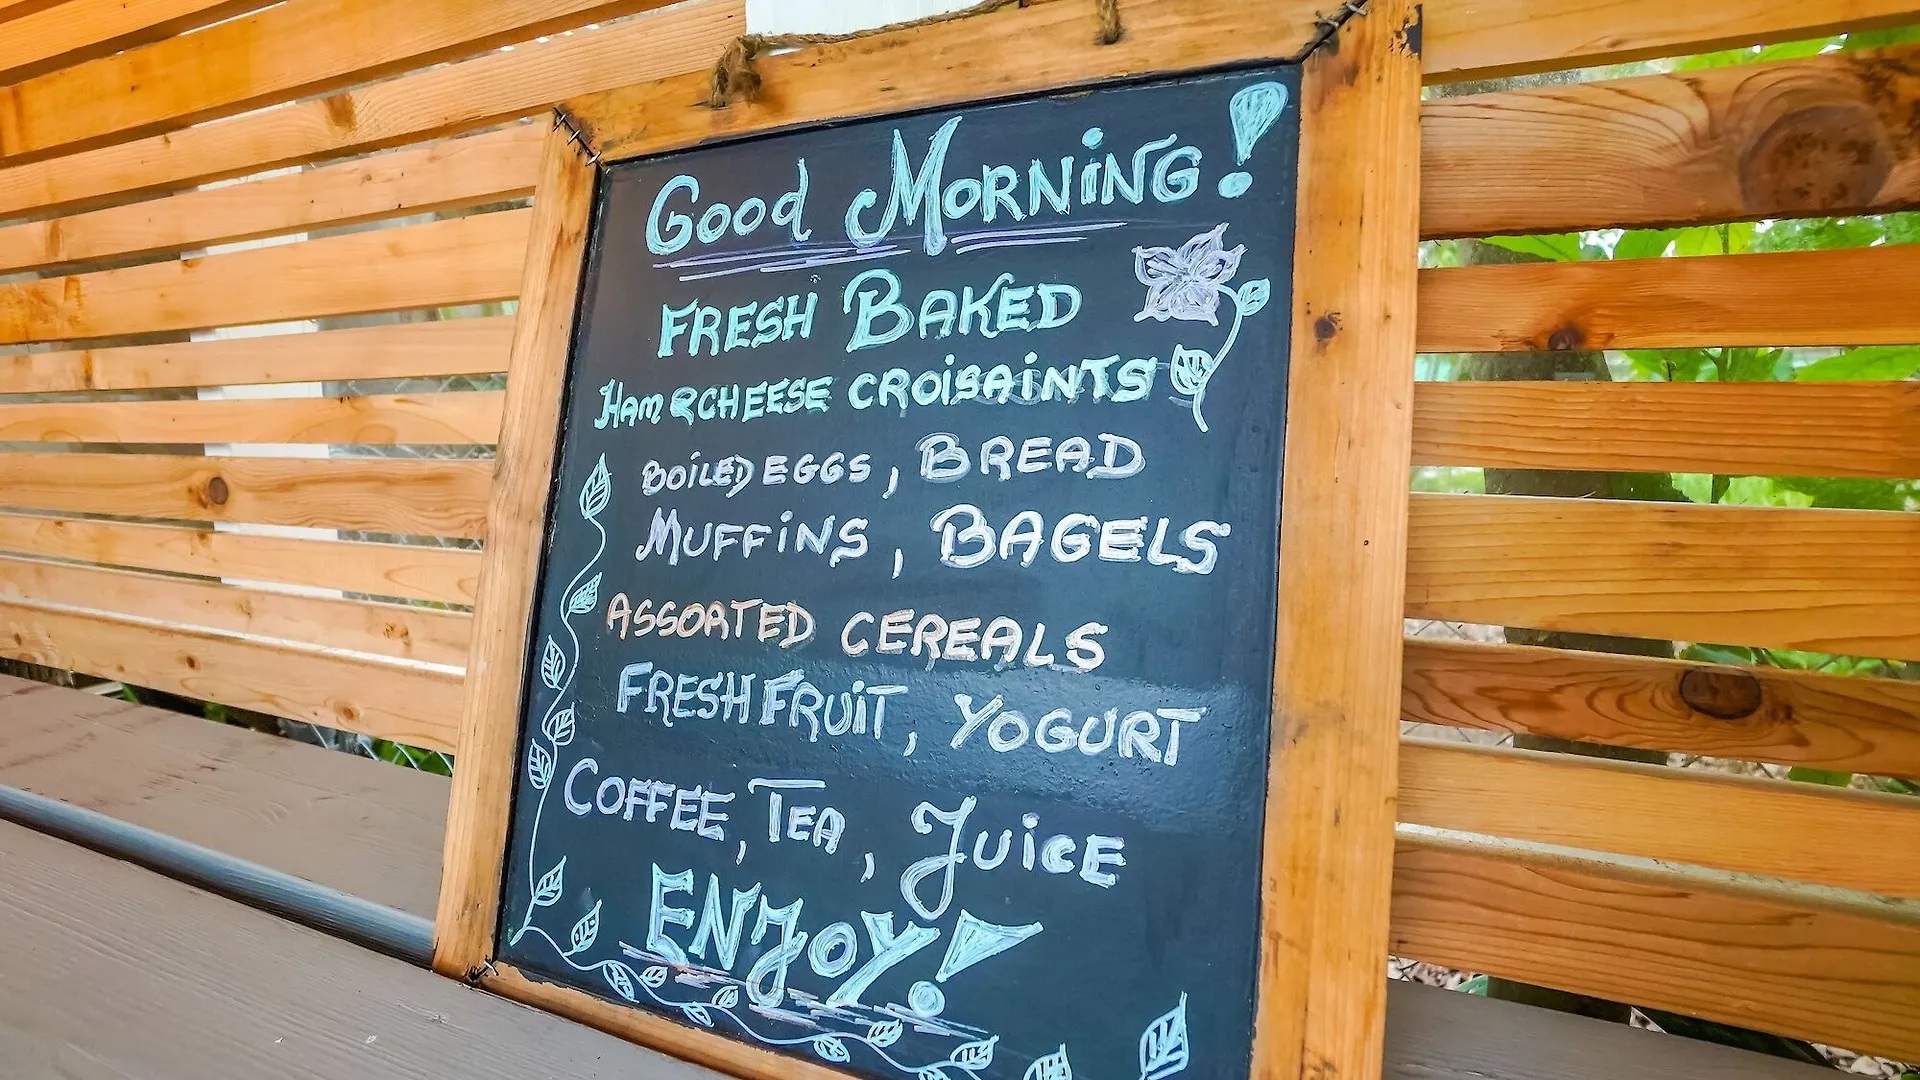 Good MORNiNG!
FRESH BAKED
HAM & CHEESE CROiSAiNTS
BOiLED EGGS, BREAD
MUFFiNS, BAGELS
ASSORTED CEREALS
FRESH FRUiT, YOGURT
COFFEE, TEA, JUiCE
ENJOY!